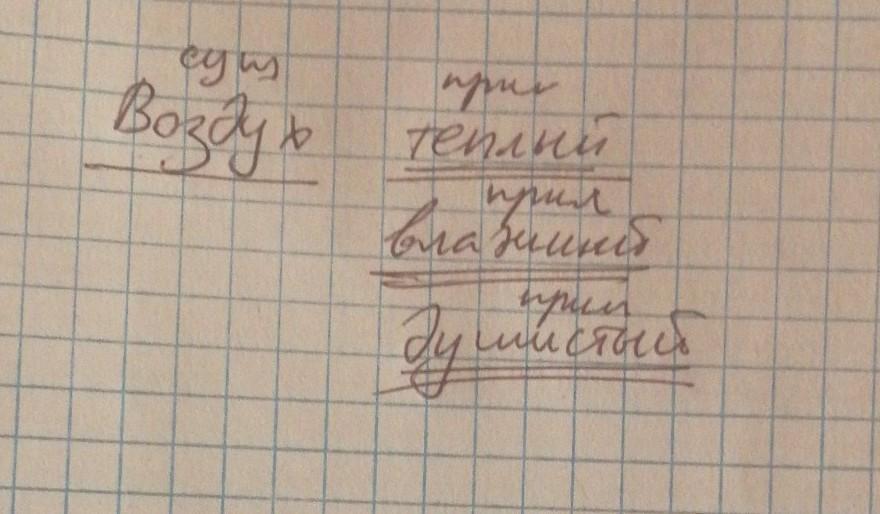 сущ
Воздух
прил
теплый
прил
влажный
прил
душистый